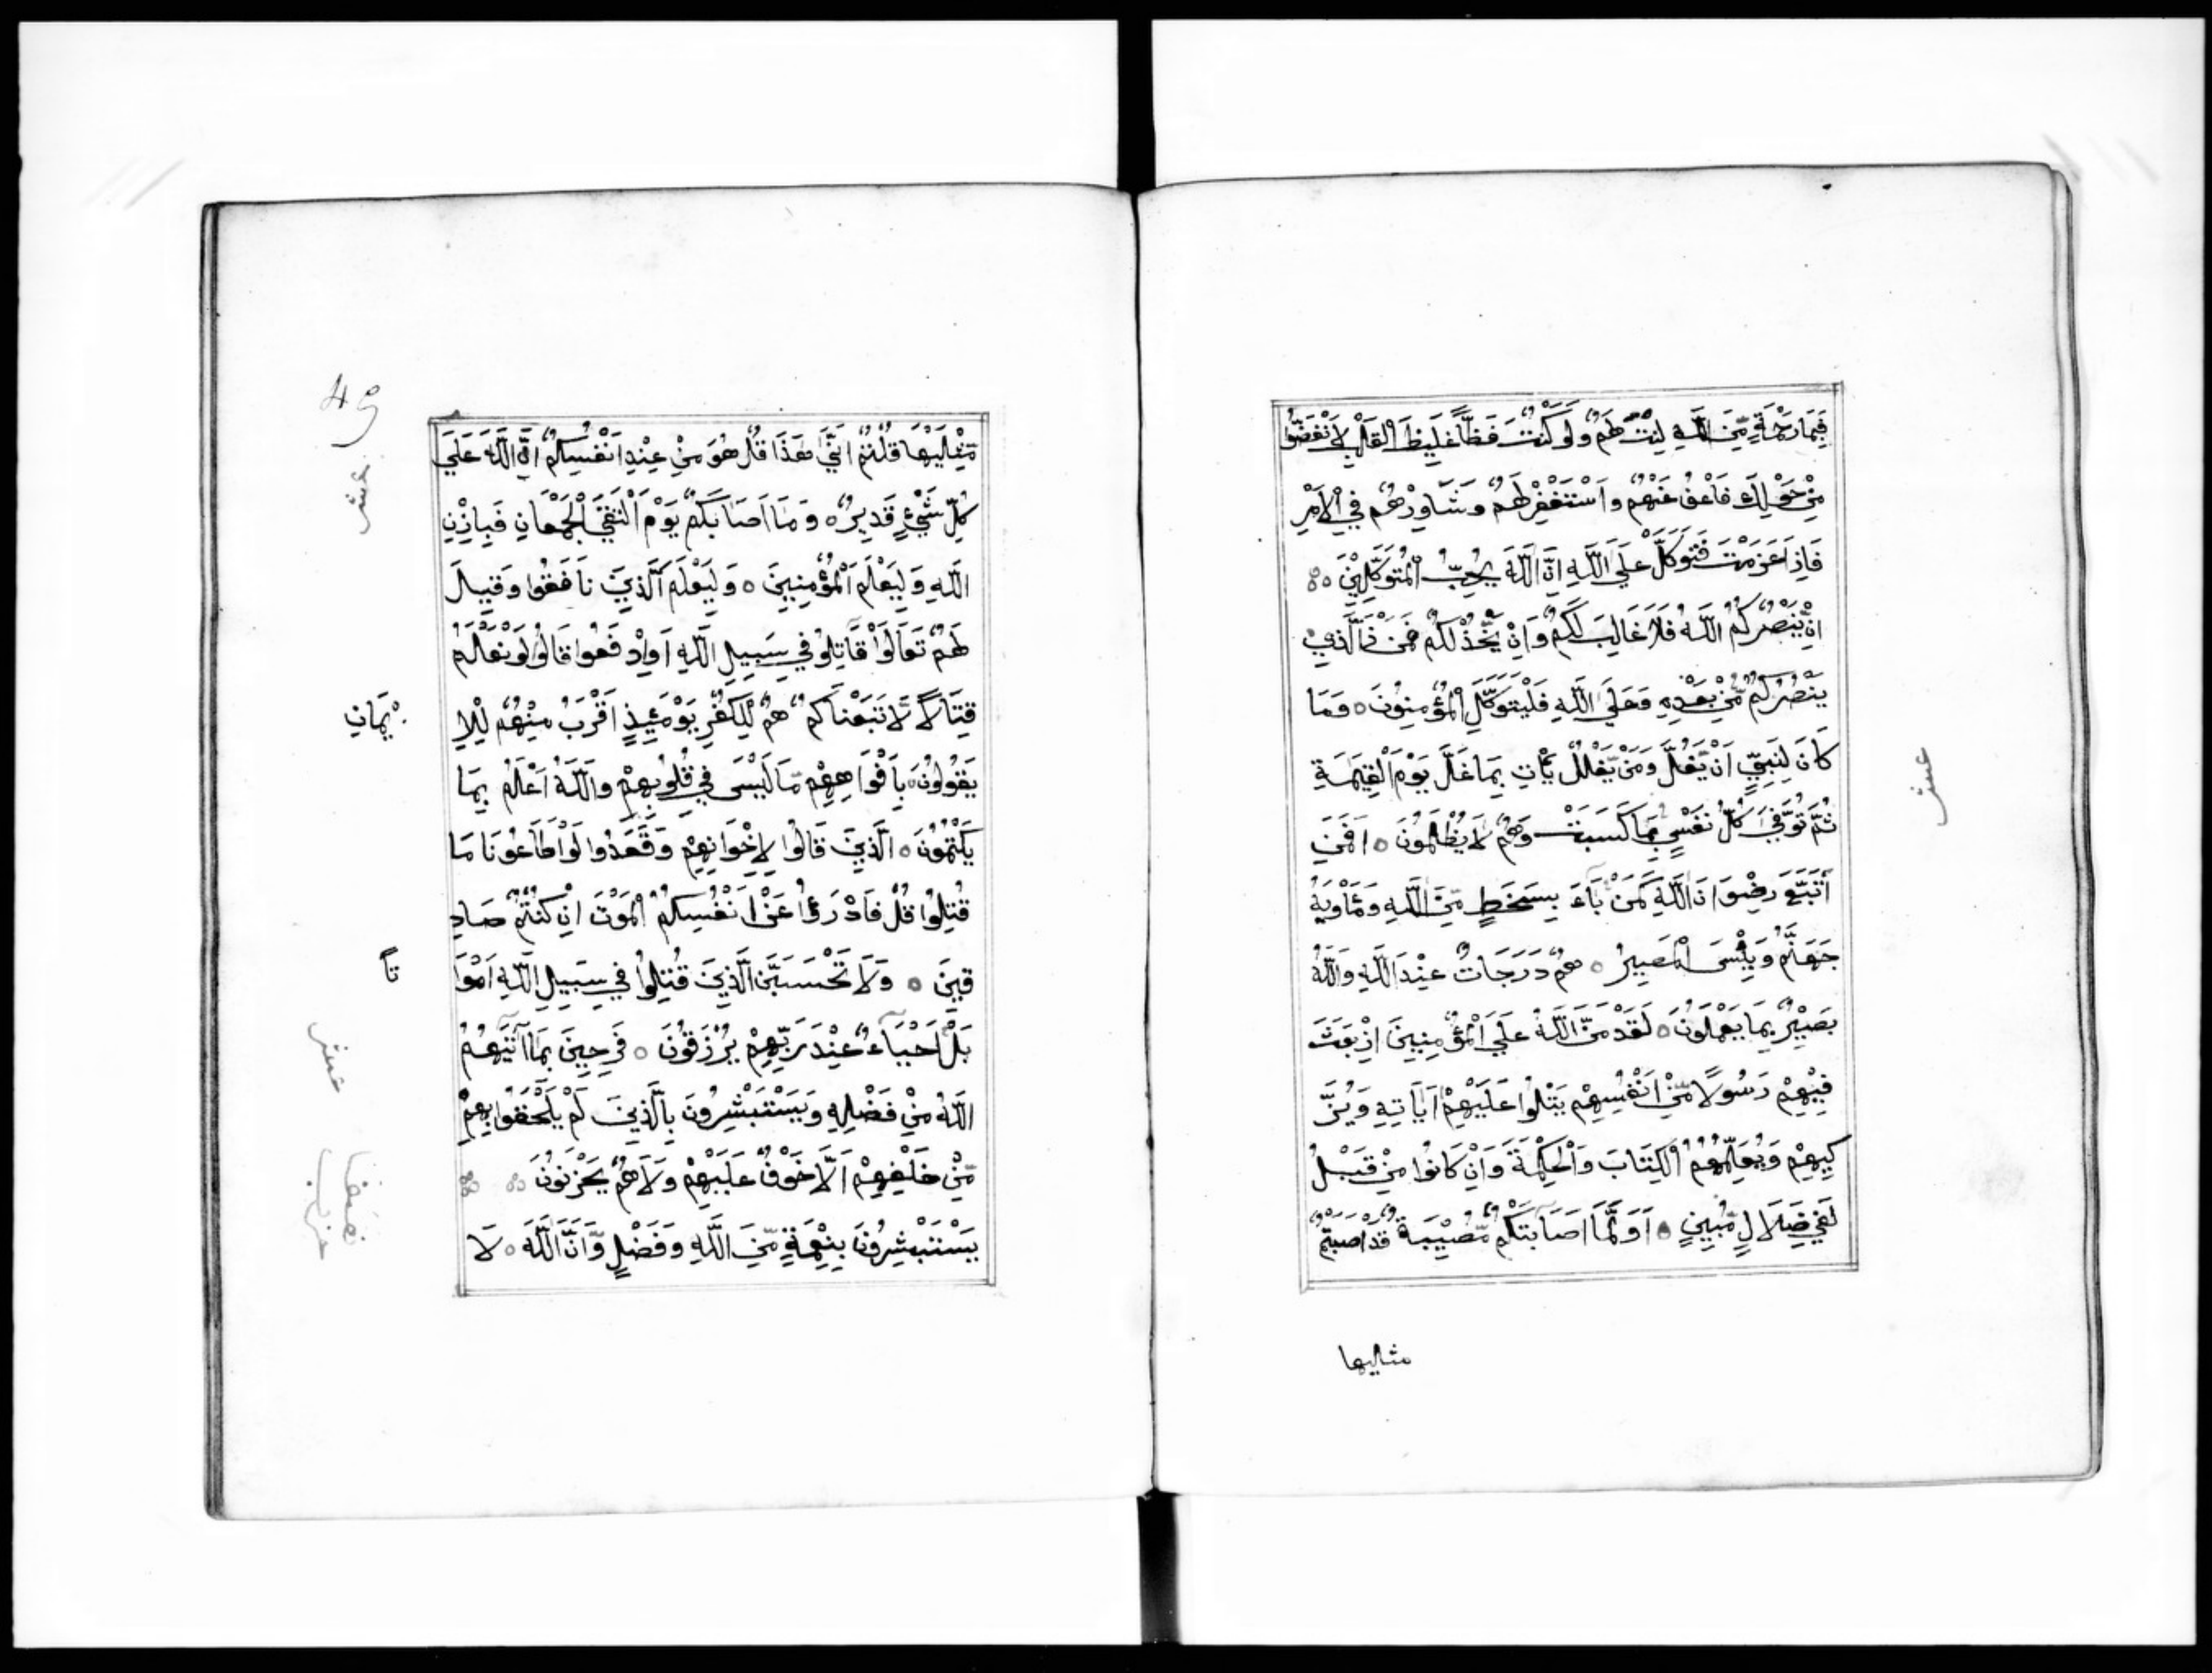 فَبِمَا رَحْمَةٍ مِّنَ اللَّهِ لِنْتَ لَهُمْ وَلَوْ كُنْتَ فَظًّا غَلِيظَ الْقَلْبِ لَانْفَضُّوا
مِنْ حَوْلِكَ فَاعْفُ عَنْهُمْ وَاسْتَغْفِرْ لَهُمْ وَشَاوِرْهُمْ فِي الْأَمْرِ
فَاِذَا عَزَمْتَ فَتَوَكَّلْ عَلَى اللَّهِ اِنَّ اللَّهَ يُحِبُّ الْمُتَوَكِّلِينَ
اِنْ يَنْصُرْكُمُ اللَّهُ فَلَا غَالِبَ لَكُمْ وَاِنْ يَخْذُلْكُمْ فَمَنْ ذَا الَّذِي
يَنْصُرُكُمْ مِّنْ بَعْدِهِ وَعَلَى اللَّهِ فَلْيَتَوَكَّلِ الْمُؤْمِنُونَ ○ وَمَا
كَانَ لِنَبِيٍّ اَنْ يَغُلَّ وَمَنْ يَغْلُلْ يَأْتِ بِمَا غَلَّ يَوْمَ الْقِيٰمَةِ
ثُمَّ تُوَفَّى كُلُّ نَفْسٍ بِمَا كَسَبَتْ وَهُمْ لَا يُظْلَمُونَ ○ اَفَمَنِ
اتَّبَعَ رِضْوَانَ اللَّهِ كَمَنْ بَآءَ بِسَخَطٍ مِّنَ اللَّهِ وَمَأْوٰيهُ
جَهَنَّمُ وَبِئْسَ الْمَصِيرُ ○ هُمْ دَرَجَاتٌ عِنْدَ اللَّهِ وَاللَّهُ
بَصِيرٌ بِمَا يَعْمَلُونَ ○ لَقَدْ مَنَّ اللَّهُ عَلَى الْمُؤْمِنِينَ اِذْ بَعَثَ
فِيهِمْ رَسُولًا مِّنْ اَنْفُسِهِمْ يَتْلُوا عَلَيْهِمْ اٰيَاتِهِ وَيُزَ
كِّيهِمْ وَيُعَلِّمُهُمُ الْكِتَابَ وَالْحِكْمَةَ وَاِنْ كَانُوا مِنْ قَبْلُ
لَفِي ضَلَالٍ مُّبِينٍ ○ اَوَلَمَّا اَصَابَتْكُمْ مُّصِيبَةٌ قَدْ اَصَبْتُمْ
عشر
مثليها
مِّثْلَيْهَا قُلْتُمْ اَنَّى هَذَا قُلْ هُوَ مِنْ عِنْدِ اَنْفُسِكُمْ اِنَّ اللَّهَ عَلَى
كُلِّ شَيْءٍ قَدِيرٌ ○ وَمَا اَصَابَكُمْ يَوْمَ الْتَقَى الْجَمْعَانِ فَبِاِذْنِ
اللَّهِ وَلِيَعْلَمَ الْمُؤْمِنِينَ ○ وَلِيَعْلَمَ الَّذِينَ نَافَقُوا وَقِيلَ
لَهُمْ تَعَالَوْا قَاتِلُوا فِي سَبِيلِ اللَّهِ اَوِ ادْفَعُوا قَالُوا لَوْ نَعْلَمُ
قِتَالًا لَّاتَّبَعْنَاكُمْ هُمْ لِلْكُفْرِ يَوْمَئِذٍ اَقْرَبُ مِنْهُمْ لِلْاِ
يمَانِ
يَقُولُونَ بِاَفْوَاهِهِمْ مَّا لَيْسَ فِي قُلُوبِهِمْ وَاللَّهُ اَعْلَمُ بِمَا
يَكْتُمُونَ ○ الَّذِينَ قَالُوا لِاِخْوَانِهِمْ وَقَعَدُوا لَوْ اَطَاعُونَا مَا
قُتِلُوا قُلْ فَادْرَؤُا عَنْ اَنْفُسِكُمُ الْمَوْتَ اِنْ كُنْتُمْ صَادِ
قِينَ ○ وَلَا تَحْسَبَنَّ الَّذِينَ قُتِلُوا فِي سَبِيلِ اللَّهِ اَمْوَا
تًا
بَلْ اَحْيَآءٌ عِنْدَ رَبِّهِمْ يُرْزَقُونَ ○ فَرِحِينَ بِمَا اٰتٰيهُمُ
اللَّهُ مِنْ فَضْلِهِ وَيَسْتَبْشِرُونَ بِالَّذِينَ لَمْ يَلْحَقُوا بِهِمْ
مِّنْ خَلْفِهِمْ اَلَّا خَوْفٌ عَلَيْهِمْ وَلَا هُمْ يَحْزَنُونَ
يَسْتَبْشِرُونَ بِنِعْمَةٍ مِّنَ اللَّهِ وَفَضْلٍ وَّاَنَّ اللَّهَ ○ لَا
عشر
عشر
نصف
حزب